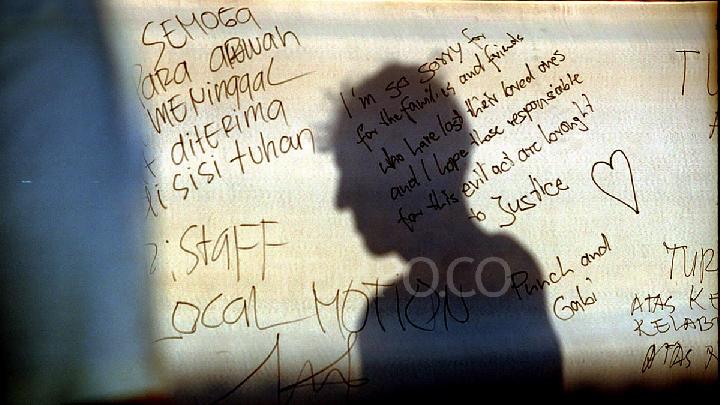 SEMOGA
ARWAH
MENINGGAL
DITERIMA
di sisi tuhan
STAFF
LOCAL MOTION
I'm so sorry for
for the families and friends
who have lost their loved ones
and I hope those responsible
for this evil act are brought
to Justice
Punch and
Gabi
TU
TUR
ATAS KE
KELAB
ATAS
oco